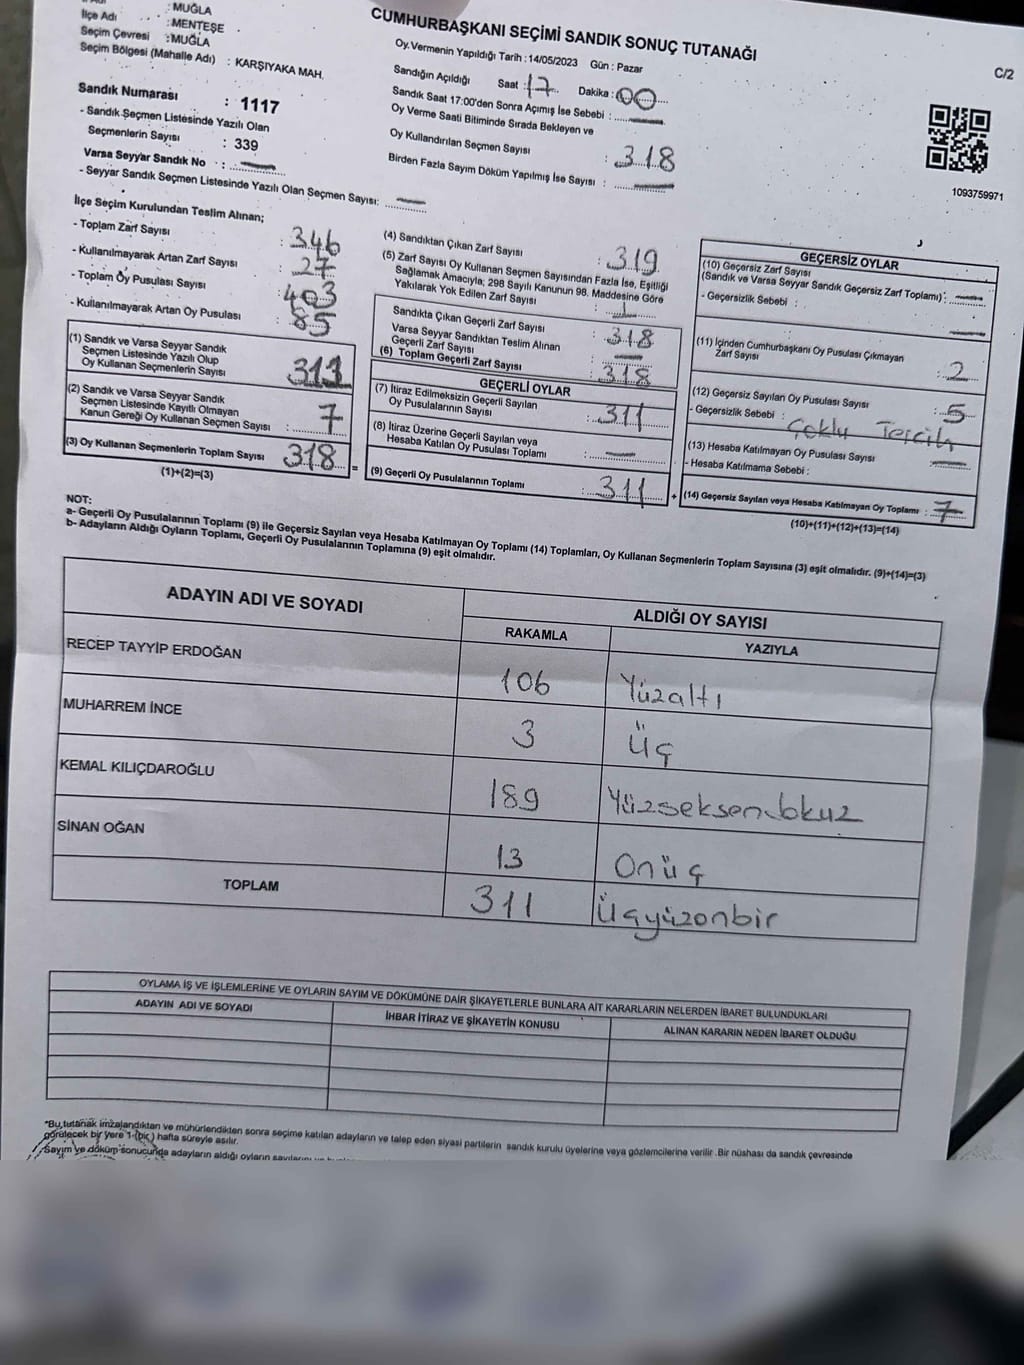 : MUĞLA
İlçe Adı : MENTEŞE
Seçim Çevresi : MUĞLA
Seçim Bölgesi (Mahalle Adı) : KARŞIYAKA MAH.
Sandık Numarası : 1117
- Sandık Seçmen Listesinde Yazılı Olan
Seçmenlerin Sayısı : 339
Varsa Seyyar Sandık No :
- Seyyar Sandık Seçmen Listesinde Yazılı Olan Seçmen Sayısı:
CUMHURBAŞKANI SEÇİMİ SANDIK SONUÇ TUTANAĞI
Oy Vermenin Yapıldığı Tarih : 14/05/2023 Gün : Pazar
Sandığın Açıldığı Saat : 17 Dakika : 00
Sandık Saat 17:00'den Sonra Açımış İse Sebebi :
Oy Verme Saati Bitiminde Sırada Bekleyen ve
Oy Kullandırılan Seçmen Sayısı : 318
Birden Fazla Sayım Döküm Yapılmış İse Sayısı :
C/2
1093759971
İlçe Seçim Kurulundan Teslim Alınan;
- Toplam Zarf Sayısı : 346
- Kullanılmayarak Artan Zarf Sayısı : 27
- Toplam Oy Pusulası Sayısı 403
- Kullanılmayarak Artan Oy Pusulası : 85
(1) Sandık ve Varsa Seyyar Sandık
Seçmen Listesinde Yazılı Olup
Oy Kullanan Seçmenlerin Sayısı 311
(2) Sandık ve Varsa Seyyar Sandık
Seçmen Listesinde Kayıtlı Olmayan
Kanun Gereği Oy Kullanan Seçmen Sayısı : 7
(3) Oy Kullanan Seçmenlerin Toplam Sayısı 318 =
(1)+(2)=(3)
(4) Sandıktan Çıkan Zarf Sayısı : 319
(5) Zarf Sayısı Oy Kullanan Seçmen Sayısından Fazla İse, Eşitliği
Sağlamak Amacıyla; 298 Sayılı Kanunun 98. Maddesine Göre
Yakılarak Yok Edilen Zarf Sayısı : 1
Sandıkta Çıkan Geçerli Zarf Sayısı : 318
Varsa Seyyar Sandıktan Teslim Alınan
Geçerli Zarf Sayısı :
(6) Toplam Geçerli Zarf Sayısı : 318
GEÇERLİ OYLAR
(7) İtiraz Edilmeksizin Geçerli Sayılan
Oy Pusulalarının Sayısı : 311
(8) İtiraz Üzerine Geçerli Sayılan veya
Hesaba Katılan Oy Pusulası Toplamı :
(9) Geçerli Oy Pusulalarının Toplamı : 311 +
GEÇERSİZ OYLAR
(10) Geçersiz Zarf Sayısı
(Sandık ve Varsa Seyyar Sandık Geçersiz Zarf Toplamı) :
- Geçersizlik Sebebi :
(11) İçinden Cumhurbaşkanı Oy Pusulası Çıkmayan
Zarf Sayısı : 2
(12) Geçersiz Sayılan Oy Pusulası Sayısı : 5
- Geçersizlik Sebebi : Çoklu Tercih
(13) Hesaba Katılmayan Oy Pusulası Sayısı
- Hesaba Katılmama Sebebi :
(14) Geçersiz Sayılan veya Hesaba Katılmayan Oy Toplamı : 7
(10)+(11)+(12)+(13)=(14)
NOT:
a- Geçerli Oy Pusulalarının Toplamı (9) ile Geçersiz Sayılan veya Hesaba Katılmayan Oy Toplamı (14) Toplamları, Oy Kullanan Seçmenlerin Toplam Sayısına (3) eşit olmalıdır. (9)+(14)=(3)
b- Adayların Aldığı Oyların Toplamı, Geçerli Oy Pusulalarının Toplamına (9) eşit olmalıdır.
ADAYIN ADI VE SOYADI ALDIĞI OY SAYISI
RAKAMLA YAZIYLA
RECEP TAYYİP ERDOĞAN 106 Yüzaltı
MUHARREM İNCE 3 Üç
KEMAL KILIÇDAROĞLU 189 Yüzseksendokuz
SİNAN OĞAN 13 Onüç
TOPLAM 311 Üçyüzonbir
OYLAMA İŞ VE İŞLEMLERİNE VE OYLARIN SAYIM VE DÖKÜMÜNE DAİR ŞİKAYETLERLE BUNLARA AİT KARARLARIN NELERDEN İBARET BULUNDUKLARI
ADAYIN ADI VE SOYADI İHBAR İTİRAZ VE ŞİKAYETİN KONUSU ALINAN KARARIN NEDEN İBARET OLDUĞU
*Bu tutanak imzalandıktan ve mühürlendikten sonra seçime katılan adayların ve talep eden siyasi partilerin sandık kurulu üyelerine veya gözlemcilerine verilir .Bir nüshası da sandık çevresinde
görülecek bir yere 1-(bir) hafta süreyle asılır.
Sayım ve döküm sonucunda adayların aldığı oyların